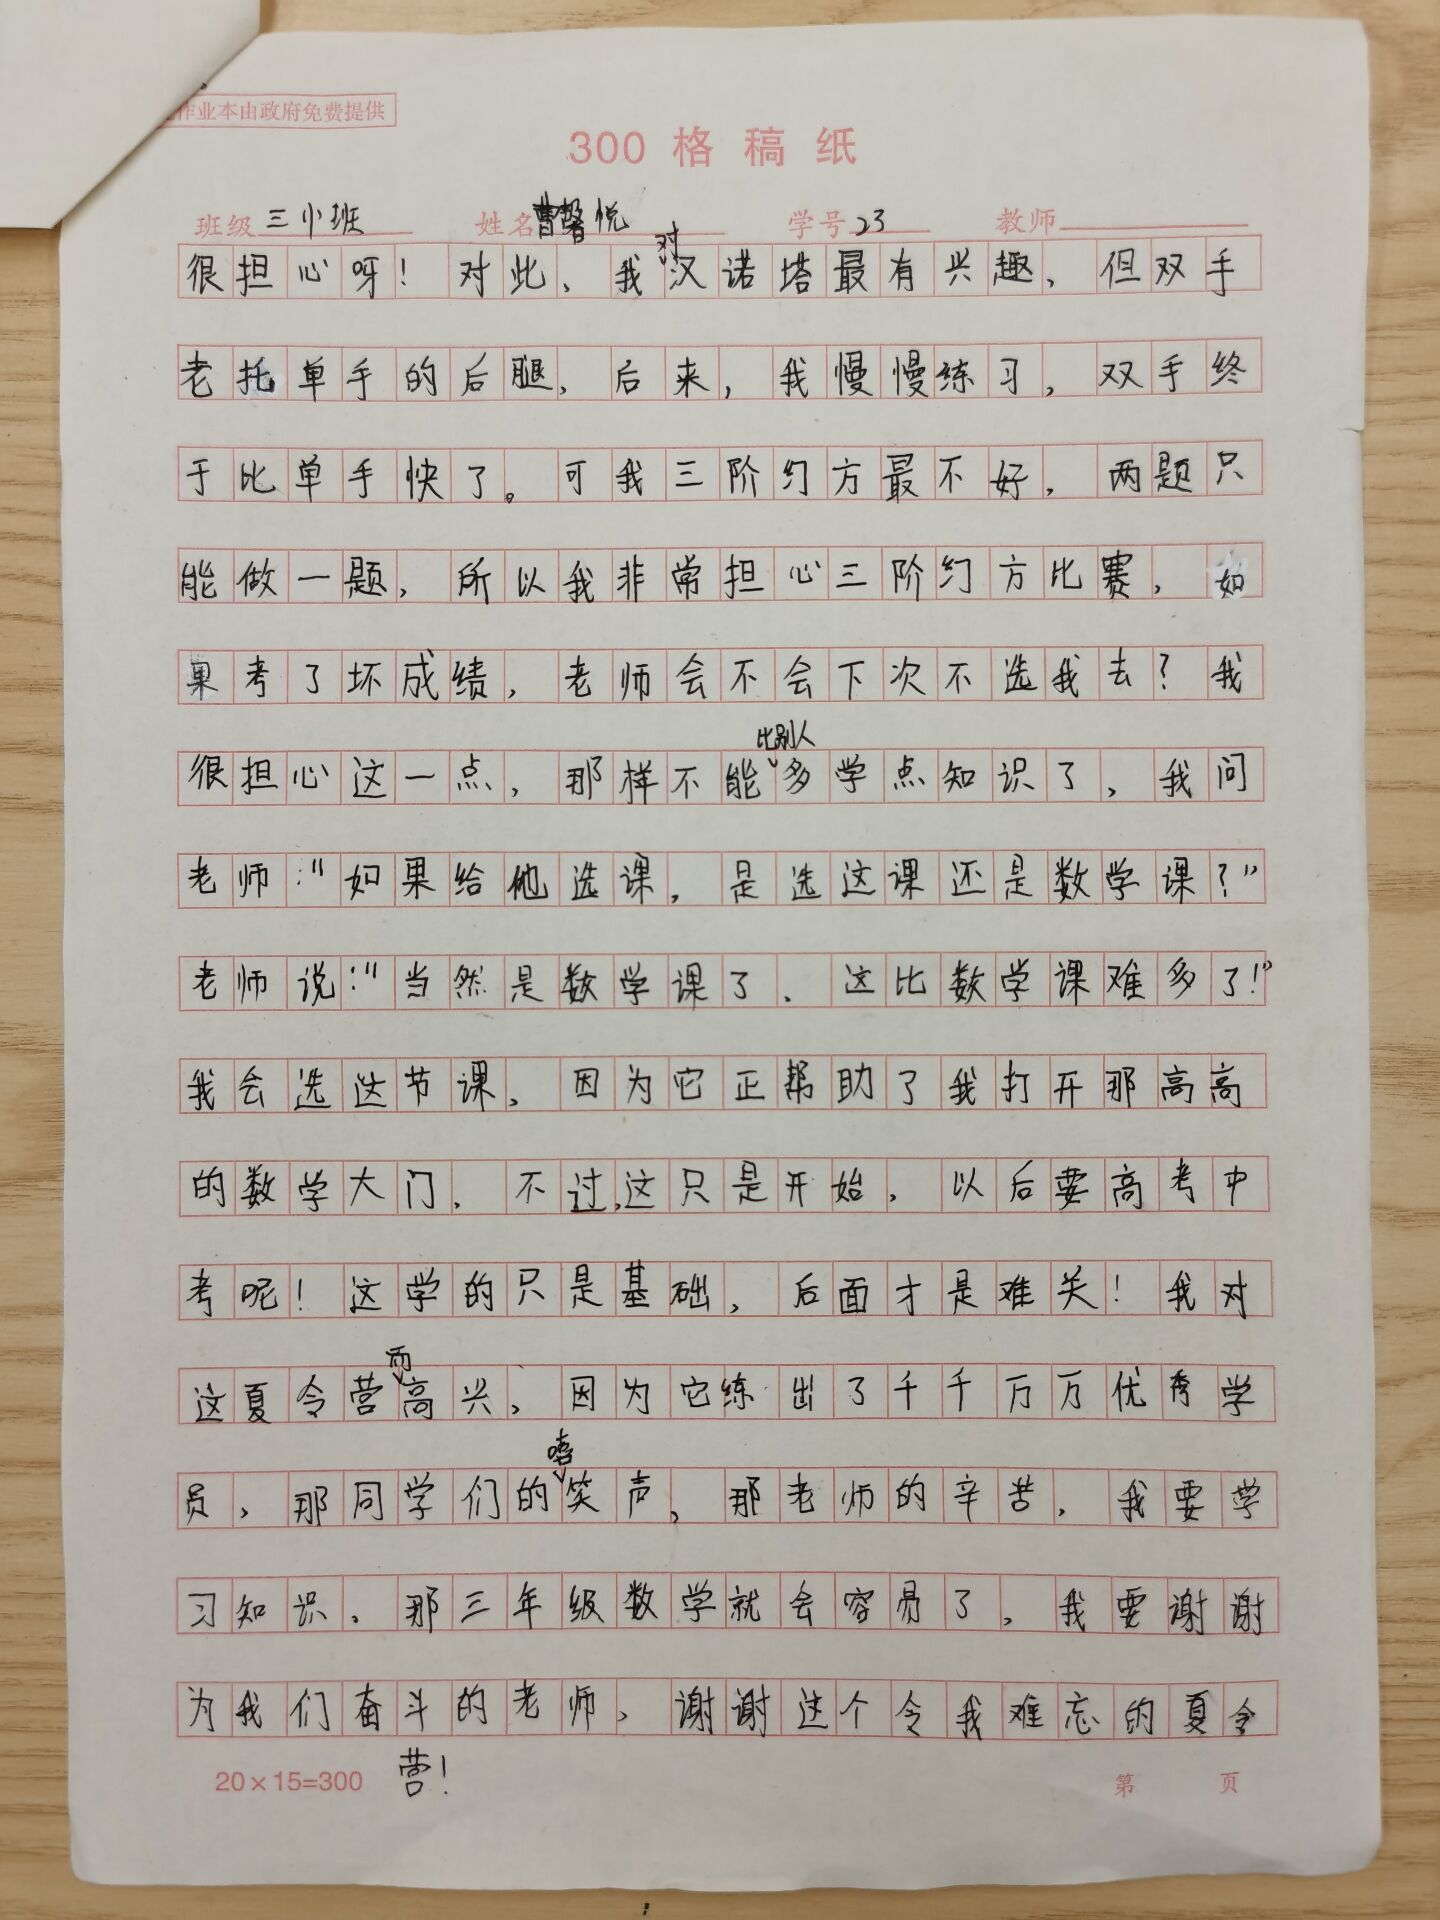 作业本由政府免费提供
300 格 稿 纸
班级 三小班 姓名 曹馨悦 学号 23 教师
很担心呀！对此，我对汉诺塔最有兴趣，但双手
老托单手的后腿，后来，我慢慢练习，双手终
于比单手快了。可我三阶幻方最不好，两题只
能做一题，所以我非常担心三阶幻方比赛，如
果考了坏成绩，老师会不会下次不选我去？我
很担心这一点，那样不能比别人多学点知识了，我问
老师：“如果给他选课，是选这课还是数学课？”
老师说：“当然是数学课了，这比数学课难多了！”
我会选这节课，因为它正帮助了我打开那高高
的数学大门，不过，这只是开始，以后要高考中
考呢！这学的只是基础，后面才是难关！我对
这夏令营而高兴，因为它练出了千千万万优秀学
员，那同学们的嘻笑声，那老师的辛苦，我要学
习知识，那三年级数学就会容易了，我要谢谢
为我们奋斗的老师，谢谢这个令我难忘的夏令
营！
20×15=300 第 页